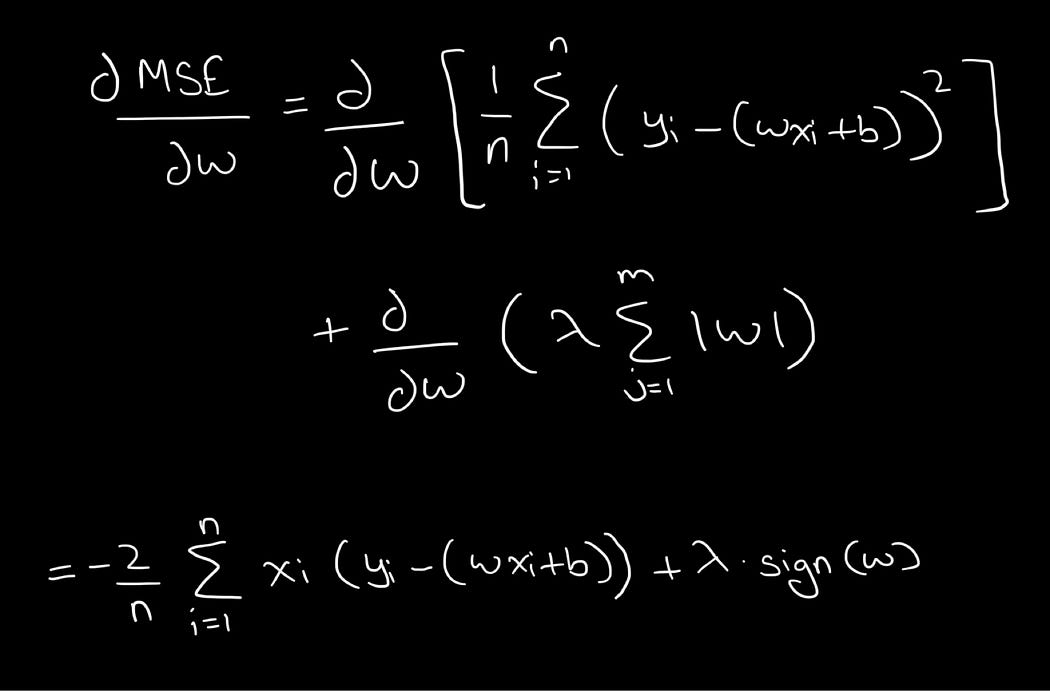 ∂MSE/∂w = ∂/∂w [ 1/n ∑_{i=1}^{n} (yi − (wxi + b))² ]
+ ∂/∂w (λ ∑_{j=1}^{m} |w|)
= −2/n ∑_{i=1}^{n} xi (yi − (wxi + b)) + λ · sign(w)